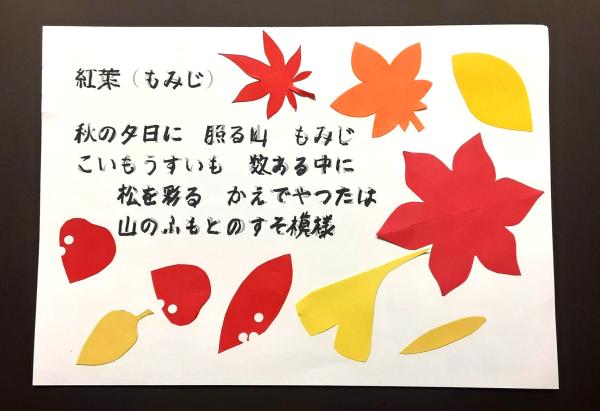 紅葉（もみじ）
秋の夕日に　照る山　もみじ
こいもうすいも　数ある中に
松を彩る　かえでやつたは
山のふもとのすそ模様